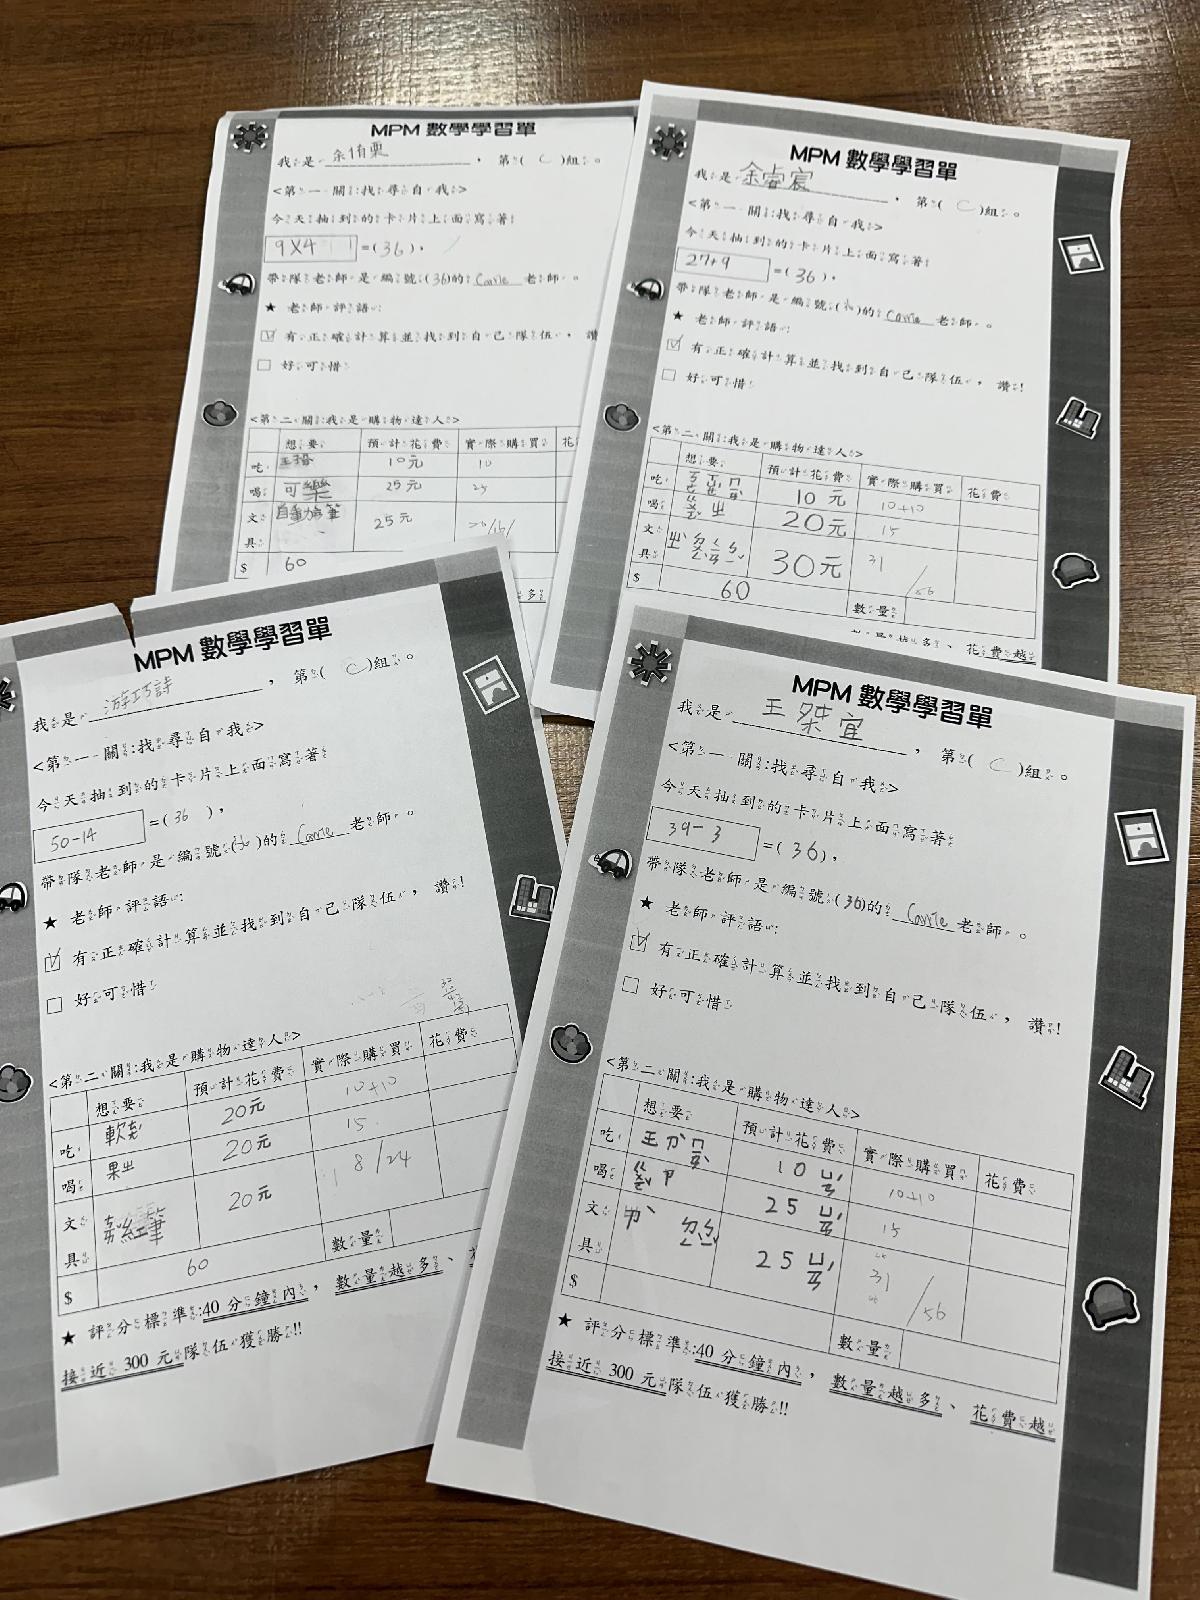 MPM 數學學習單
我是 余侑栗 ， 第( C )組。
<第一關:找尋自我>
今天抽到的卡片上面寫著
9X4 =(36)，
帶隊老師是編號(36)的 Carrie 老師。
★ 老師評語:
☑ 有正確計算並找到自己隊伍，讚
□ 好可惜
<第二關:我是購物達人>
想要 預計花費 實際購買 花
吃 10元 10
喝 可樂 25元 25
文具 自動筆 25元
$ 60
多
MPM 數學學習單
我是 余睿宸 ， 第( C )組。
<第一關:找尋自我>
今天抽到的卡片上面寫著
27+9 =(36)，
帶隊老師是編號(36)的 Carrie 老師。
★ 老師評語:
☑ 有正確計算並找到自己隊伍，讚!
□ 好可惜
<第二關:我是購物達人>
想要 預計花費 實際購買 花費
吃 10元 10+10
喝 20元 15
文具 30元 31 /56
$ 60 數量
數量越多、花費越
MPM 數學學習單
我是 游巧詩 ， 第( C )組。
<第一關:找尋自我>
今天抽到的卡片上面寫著
50-14 =(36)，
帶隊老師是編號(36)的 Carrie 老師。
★ 老師評語:
☑ 有正確計算並找到自己隊伍，讚!
□ 好可惜
<第二關:我是購物達人>
想要 預計花費 實際購買 花費
吃 20元 10+10
喝 果ㄓ 20元 15
文具 20元 8/24
$ 60 數量
★ 評分標準:40分鐘內，數量越多、花
接近300元隊伍獲勝!!
MPM 數學學習單
我是 王桀宜 ， 第( C )組。
<第一關:找尋自我>
今天抽到的卡片上面寫著
39-3 =(36)，
帶隊老師是編號(36)的 Carrie 老師。
★ 老師評語:
☑ 有正確計算並找到自己隊伍，讚!
□ 好可惜
<第二關:我是購物達人>
想要 預計花費 實際購買 花費
吃 10 10+10
喝 25 15
文具 25 31 /56
$ 數量
★ 評分標準:40分鐘內，數量越多、花費越
接近300元隊伍獲勝!!